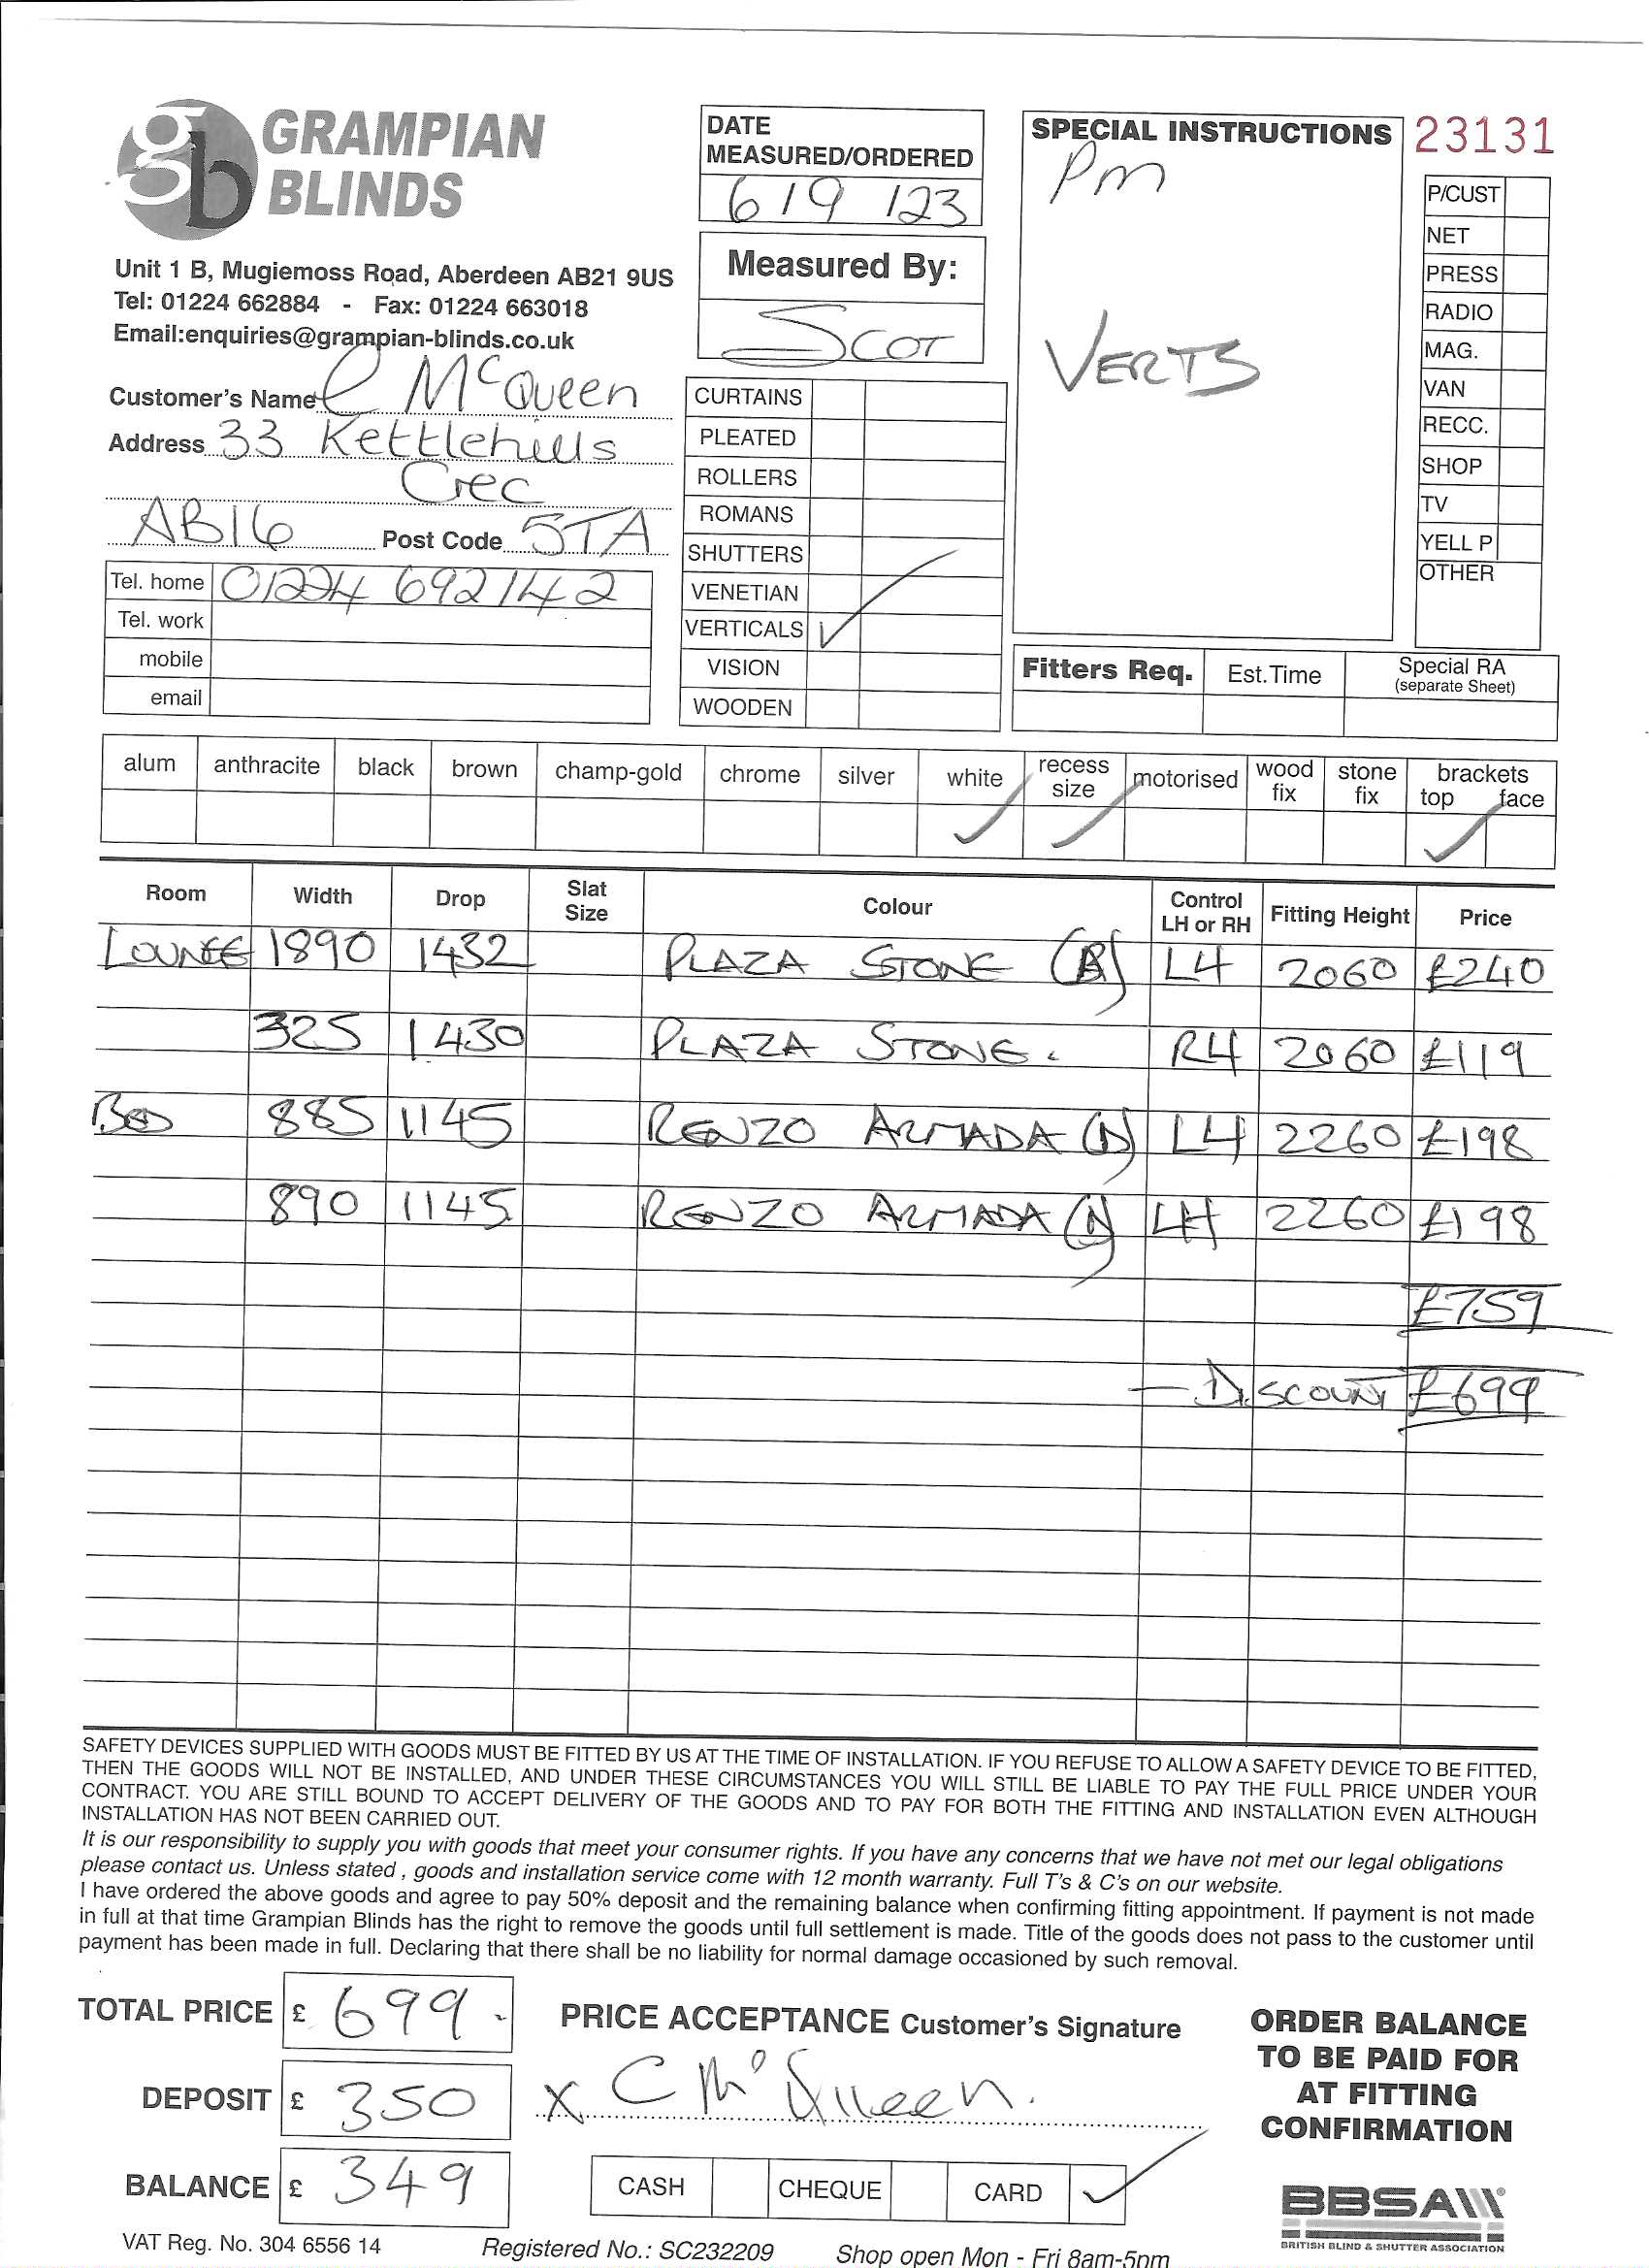 GRAMPIAN
BLINDS
Unit 1 B, Mugiemoss Road, Aberdeen AB21 9US
Tel: 01224 662884 - Fax: 01224 663018
Email:enquiries@grampian-blinds.co.uk
Customer's Name C McQueen
Address 33 Kettlehills
Crec
AB16 Post Code 5TA
Tel. home 01224 692142
Tel. work
mobile
email
DATE
MEASURED/ORDERED
6/9/23
Measured By:
SCOT
CURTAINS
PLEATED
ROLLERS
ROMANS
SHUTTERS
VENETIAN
VERTICALS ✓
VISION
WOODEN
SPECIAL INSTRUCTIONS
Pm
VERTS
23131
P/CUST
NET
PRESS
RADIO
MAG.
VAN
RECC.
SHOP
TV
YELL P
OTHER
Fitters Req. Est.Time Special RA
(separate Sheet)
alum anthracite black brown champ-gold chrome silver white recess size motorised wood fix stone fix brackets top face
✓ ✓ ✓
Room Width Drop Slat Size Colour Control LH or RH Fitting Height Price
LOUNGE 1890 1432 PLAZA STONE LH 2060 £240
325 1430 PLAZA STONE. RH 2060 £119
BED 885 1145 RENZO ARMADA (N) LH 2260 £198
890 1145 RENZO ARMADA (N) LH 2260 £198
£759
- DISCOUNT £699
SAFETY DEVICES SUPPLIED WITH GOODS MUST BE FITTED BY US AT THE TIME OF INSTALLATION. IF YOU REFUSE TO ALLOW A SAFETY DEVICE TO BE FITTED,
THEN THE GOODS WILL NOT BE INSTALLED, AND UNDER THESE CIRCUMSTANCES YOU WILL STILL BE LIABLE TO PAY THE FULL PRICE UNDER YOUR
CONTRACT. YOU ARE STILL BOUND TO ACCEPT DELIVERY OF THE GOODS AND TO PAY FOR BOTH THE FITTING AND INSTALLATION EVEN ALTHOUGH
INSTALLATION HAS NOT BEEN CARRIED OUT.
It is our responsibility to supply you with goods that meet your consumer rights. If you have any concerns that we have not met our legal obligations
please contact us. Unless stated , goods and installation service come with 12 month warranty. Full T's & C's on our website.
I have ordered the above goods and agree to pay 50% deposit and the remaining balance when confirming fitting appointment. If payment is not made
in full at that time Grampian Blinds has the right to remove the goods until full settlement is made. Title of the goods does not pass to the customer until
payment has been made in full. Declaring that there shall be no liability for normal damage occasioned by such removal.
TOTAL PRICE £ 699.-
DEPOSIT £ 350
BALANCE £ 349
PRICE ACCEPTANCE Customer's Signature
x C McQueen.
CASH CHEQUE CARD ✓
ORDER BALANCE
TO BE PAID FOR
AT FITTING
CONFIRMATION
BBSA
BRITISH BLIND & SHUTTER ASSOCIATION
VAT Reg. No. 304 6556 14 Registered No.: SC232209 Shop open Mon - Fri 8am-5pm